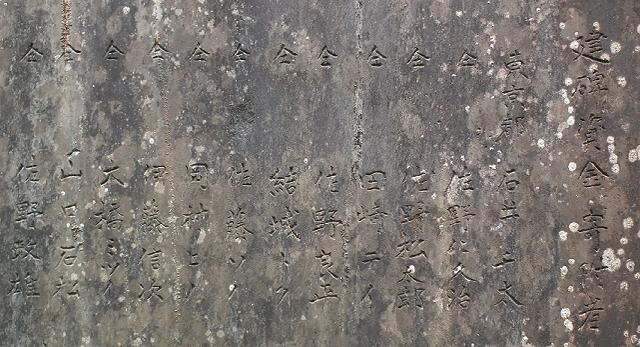 建碑資金寄附者
東京都 石井三太
仝 佐野仁久治
仝 佐野松太郎
仝 田崎テイ
仝 佐野良正
仝 結城トク
仝 佐藤ソノ
仝 岡村ヒノ
仝 伊藤信次
仝 大橋ミツイ
仝 山口石松
仝 佐野政雄